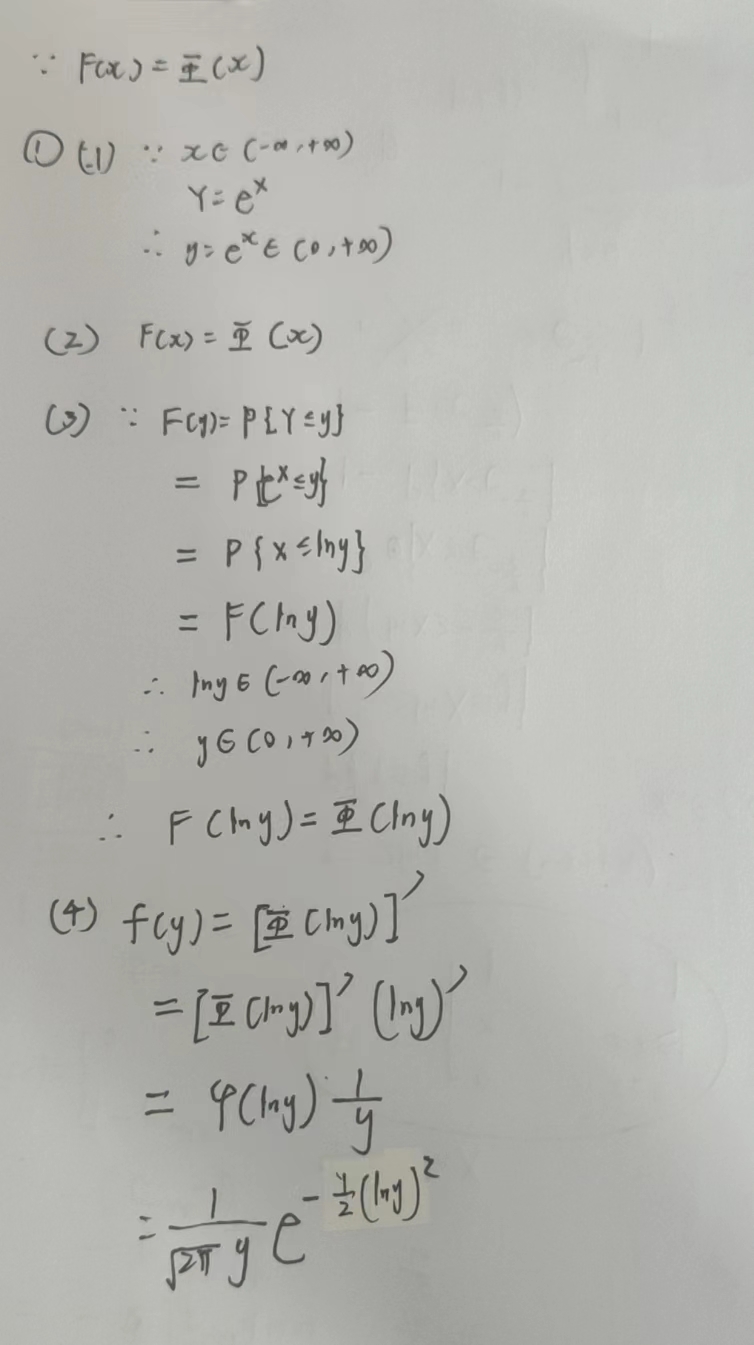 ∵ F(x) = Φ(x)
① (1) ∵ x∈(-∞,+∞)
Y = e^x
∴ y = e^x ∈ (0,+∞)
(2) F(x) = Φ(x)
(3) ∵ F(y) = P{Y≤y}
= P{e^x≤y}
= P{X≤lny}
= F(lny)
∴ lny∈(-∞,+∞)
∴ y∈(0,+∞)
∴ F(lny) = Φ(lny)
(4) f(y) = [Φ(lny)]'
= [Φ(lny)]' (lny)'
= φ(lny) 1/y
= 1/(√2π y) e^(-1/2(lny)^2)